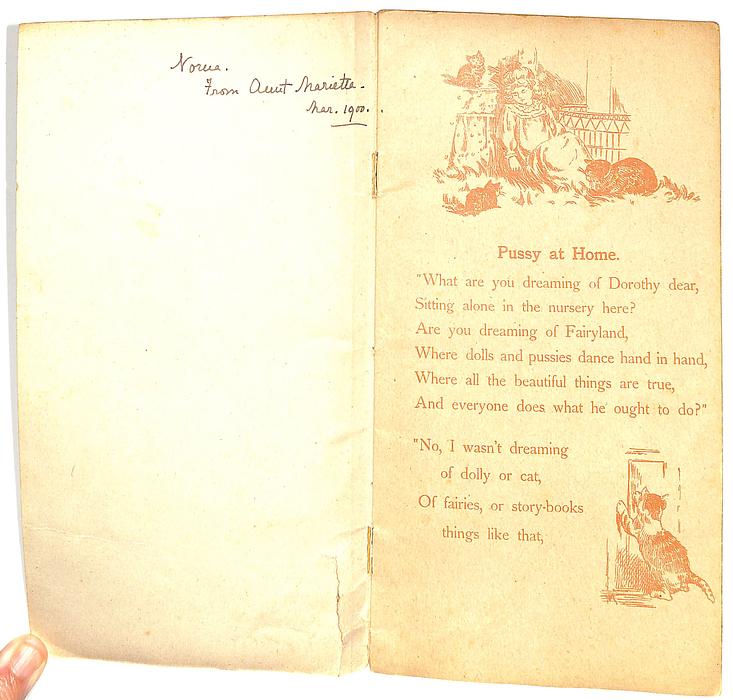 Norua.
From Aunt Marietta.
Mar. 1900.
Pussy at Home.
"What are you dreaming of Dorothy dear,
Sitting alone in the nursery here?
Are you dreaming of Fairyland,
Where dolls and pussies dance hand in hand,
Where all the beautiful things are true,
And everyone does what he ought to do?"
"No, I wasn't dreaming
of dolly or cat,
Of fairies, or story-books
things like that,